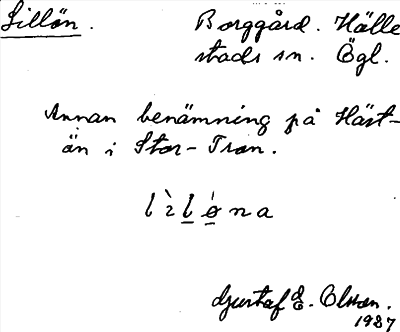 Lillön. Borggård. Hälle
stads sn. Ögl.
Annan benämning på Häst-
ön i Stor-Tron.
lìlǿna
Gustaf E. Olsson.
1937